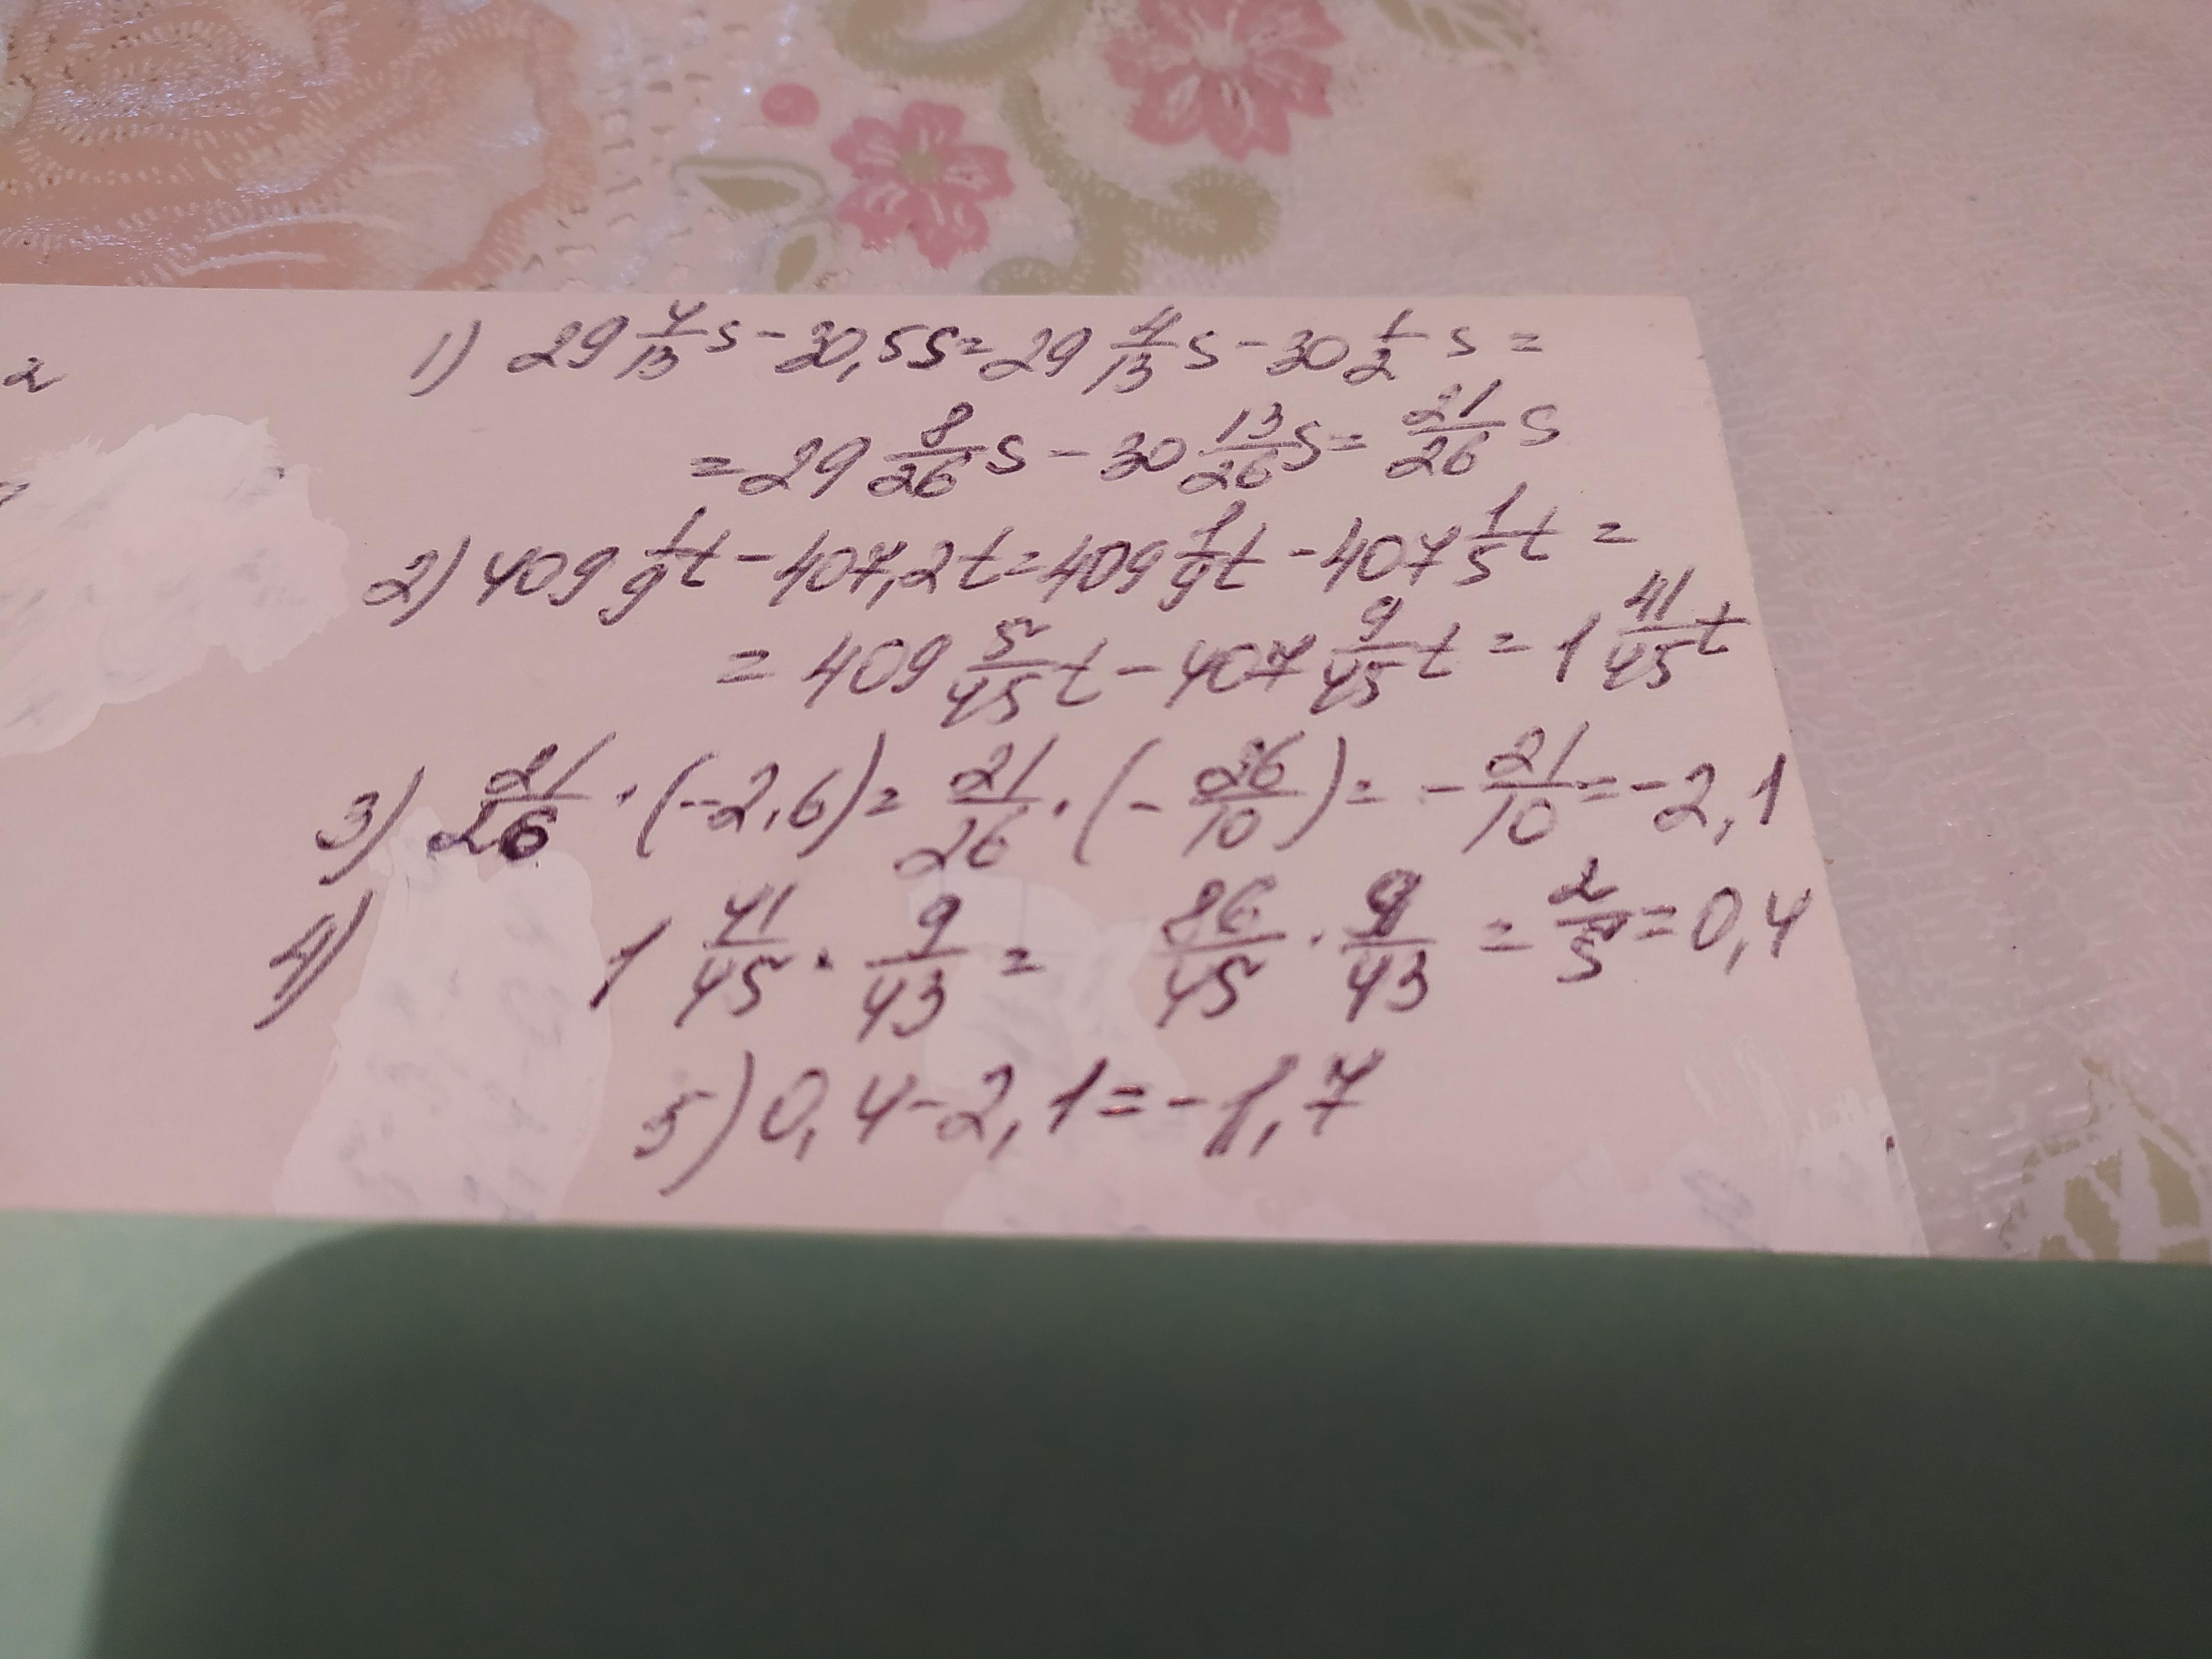 1) 29 4/13 s - 30,5s = 29 4/13 s - 30 1/2 s =
= 29 8/26 s - 30 13/26 s = 21/26 s
2) 409 1/9 t - 407,2t = 409 1/9 t - 407 1/5 t =
= 409 5/45 t - 407 9/45 t = 1 41/45 t
3) 21/26 · (-2,6) = 21/26 · (- 26/10) = - 21/10 = -2,1
4) 1 41/45 · 9/43 = 86/45 · 9/43 = 2/5 = 0,4
5) 0,4 - 2,1 = -1,7